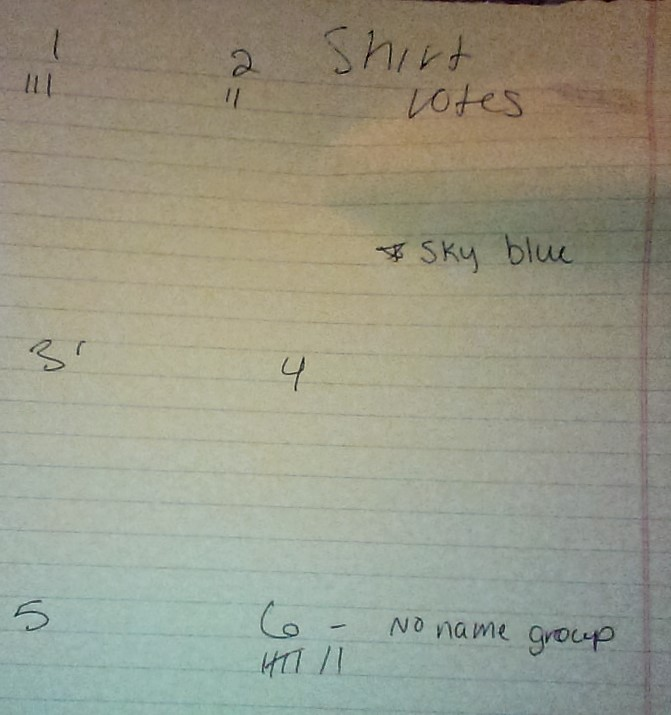 1 2 Shirt
||| || votes
* Sky blue
3 ' 4
5 6 - No name group
𝍸 ||